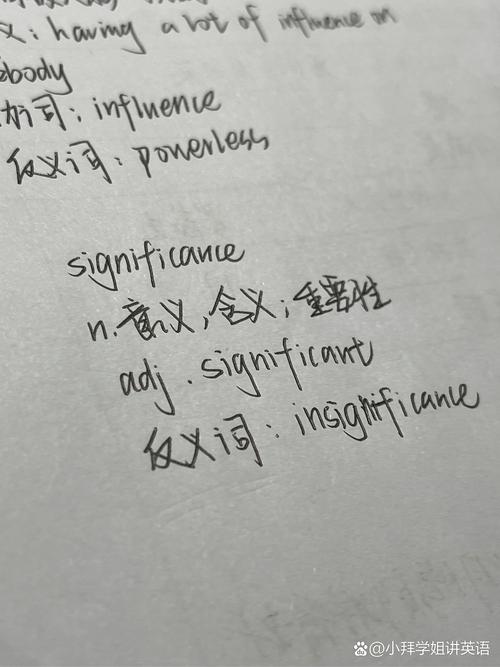 义：having a lot of influence on
ebody
动词：influence
反义词：powerless
significance
n.意义，含义；重要性
adj.significant
反义词：insignificance
小拜学姐讲英语